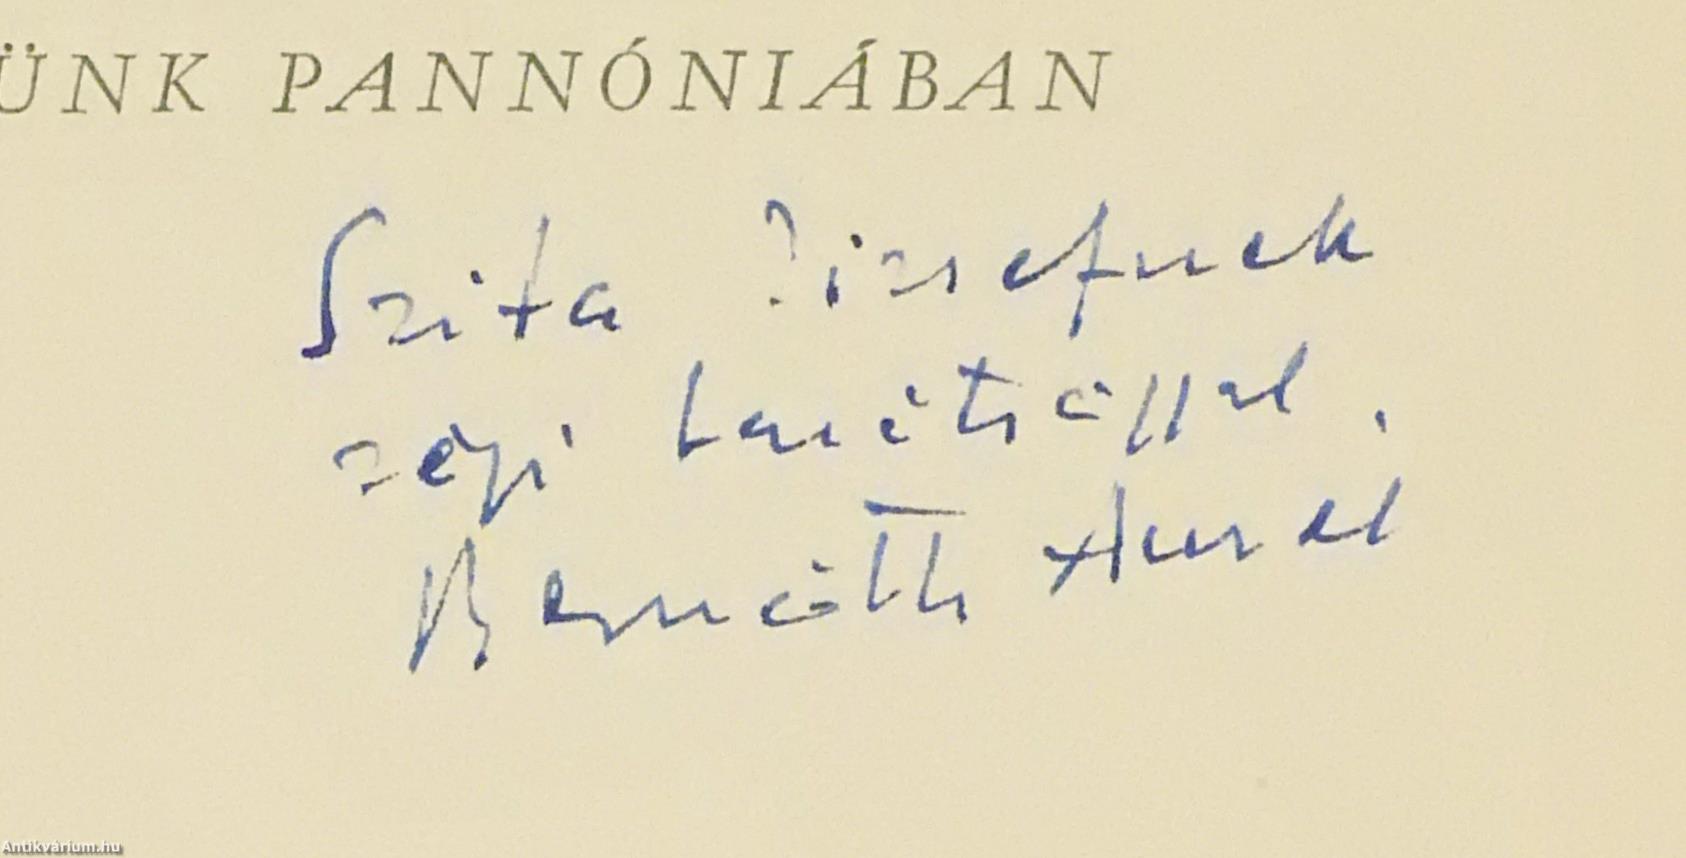 ÜNK PANNÓNIÁBAN
Szita Józsefnek
régi barátsággal.
Bernáth Aurél
Antikvárium.hu